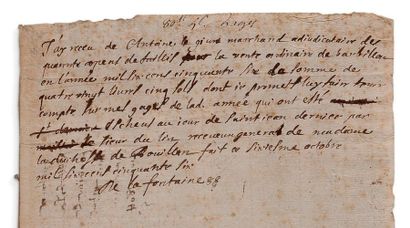 J'ay receu de Antoine le givre marchand adiudicataire des
quarante arpens de fustail pour la vente ordinaire de barbillon
en l'année mil six cens cinquante six la somme de
quatre vingt livres cinq solz dont je promest luy faire tenir
compte sur mes gages de lad. année qui ont esté
escheus au iour de saint iean dernier par
le sieur du lin receveur general de madame
la duchesse de Bouillon fait ce sixiesme octobre
mil six cent cinquante six
De la fontaine